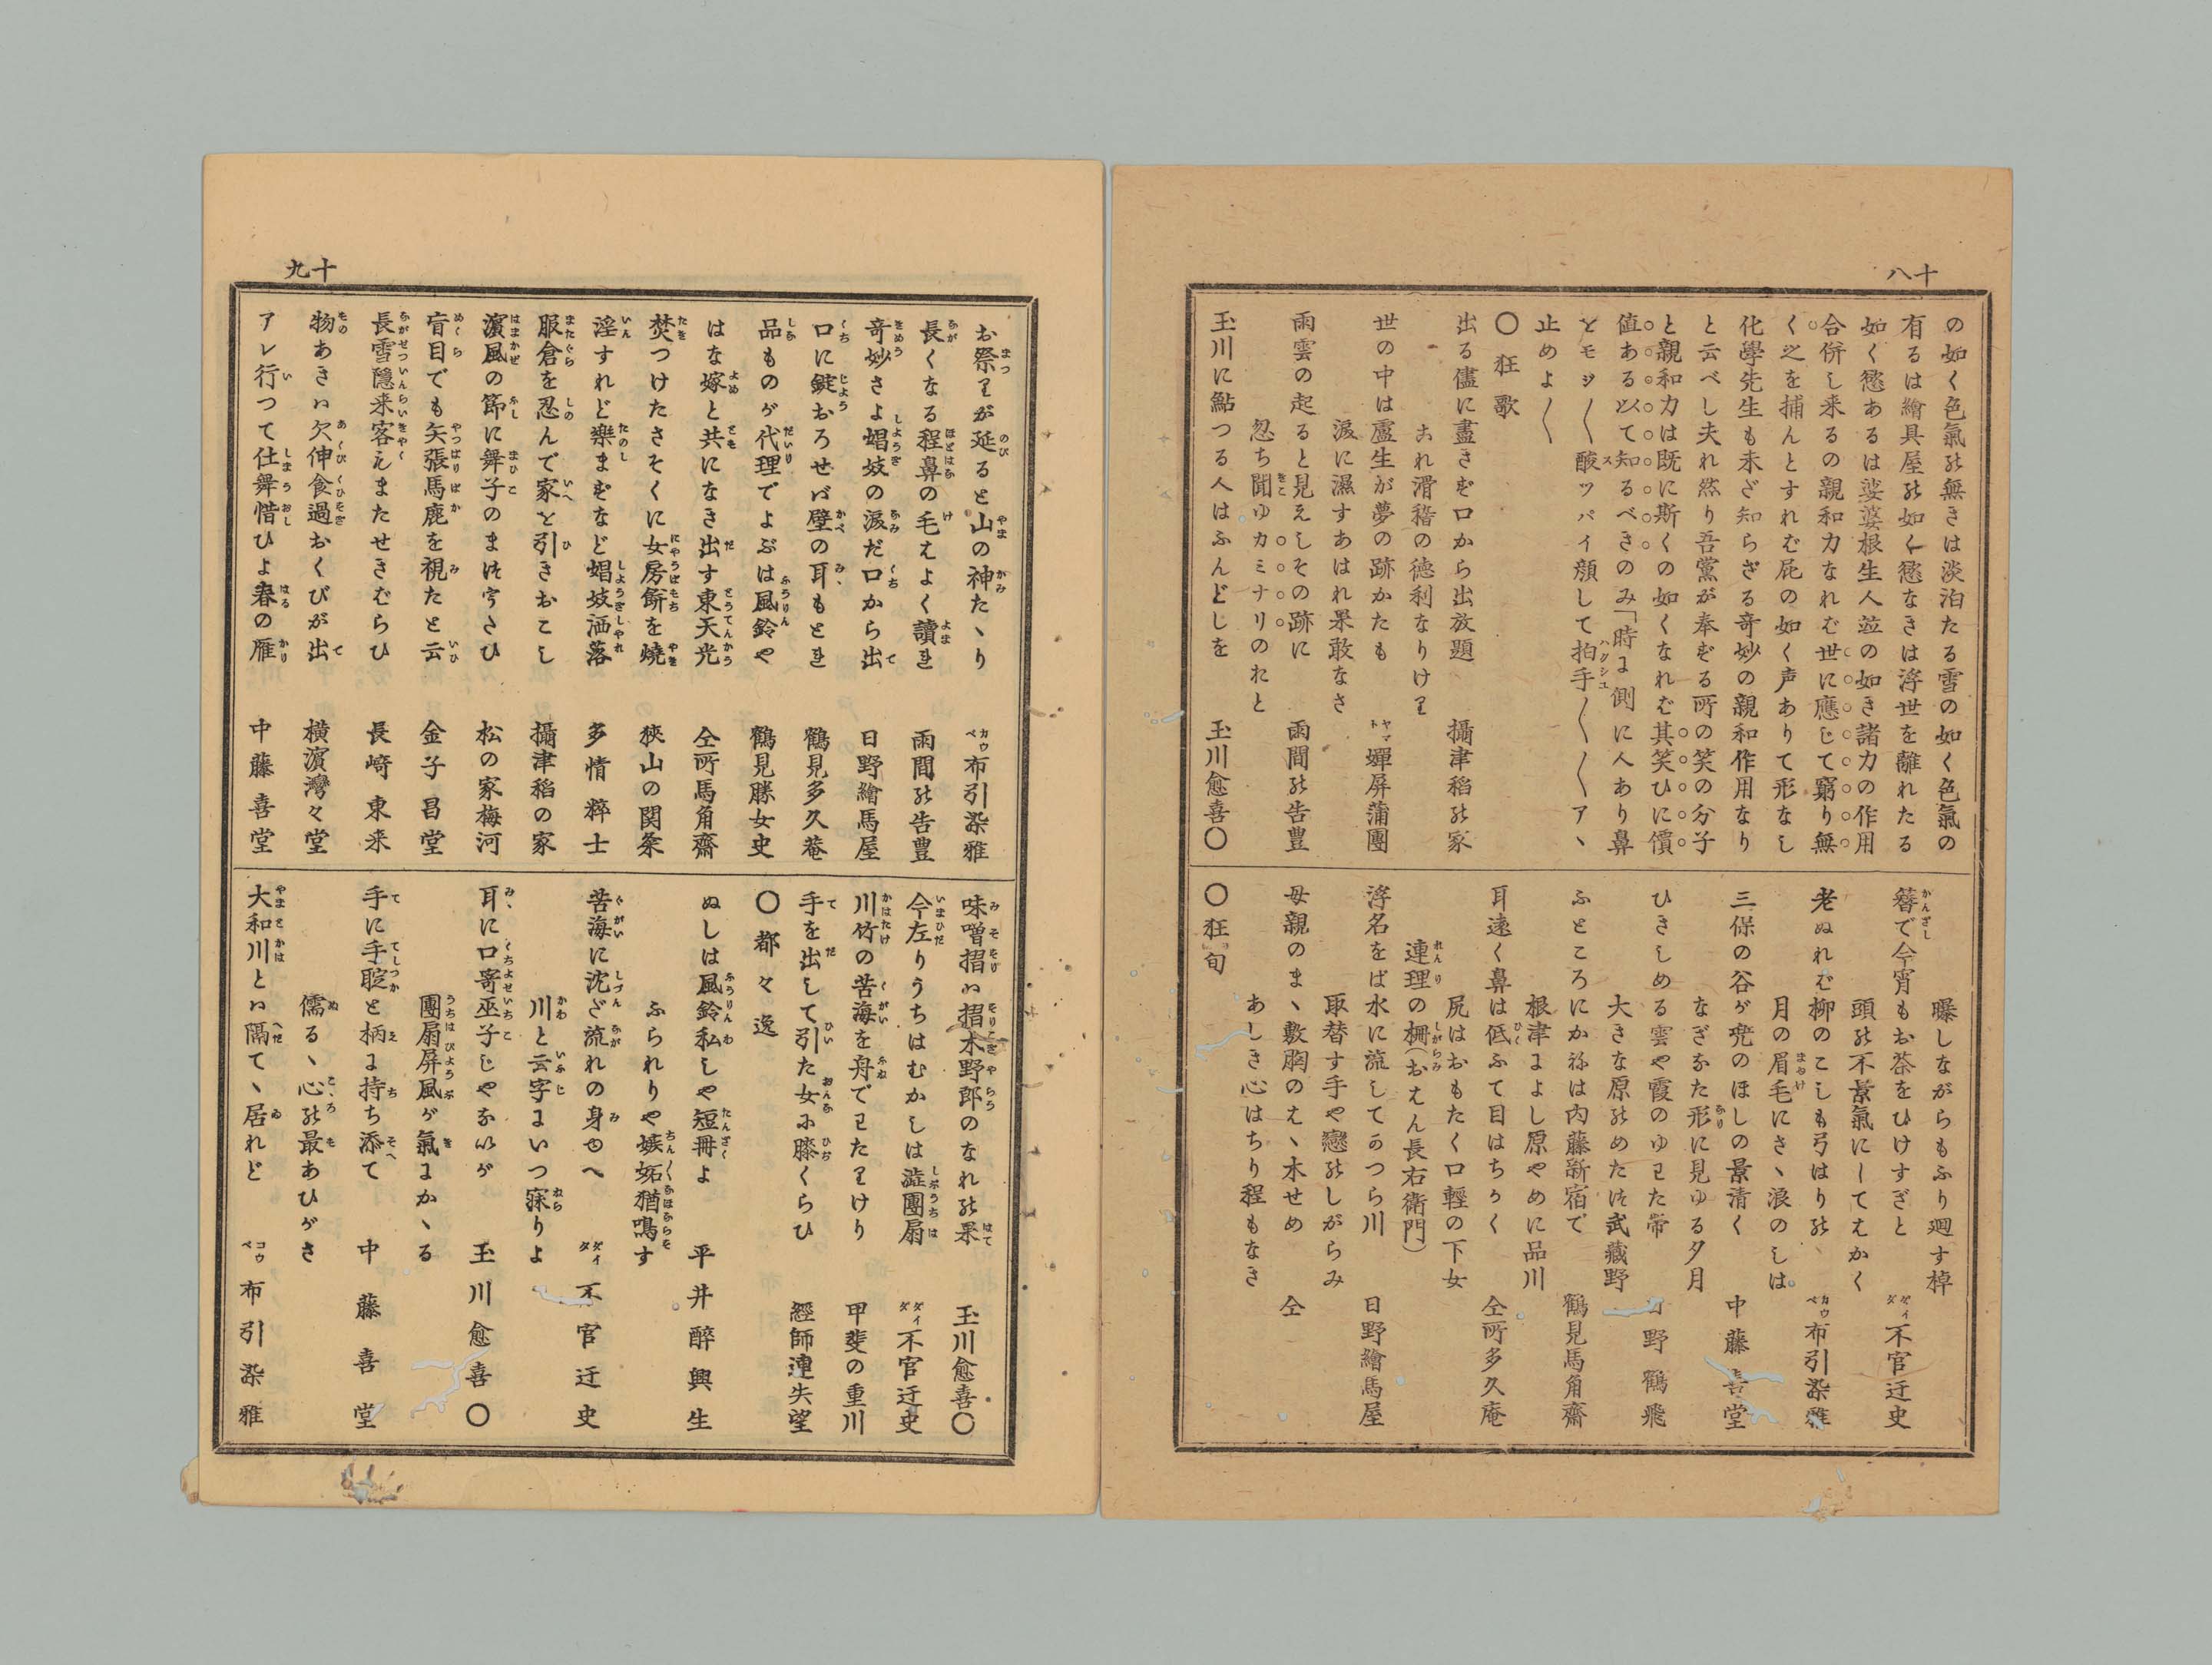 十八
の如く色氣の無きは淡泊たる雪の如く色氣の
有るは繪具屋の如く慾なきは浮世を離れたる
如く慾あるは娑婆根生人並の如き諸力の作用
合併し来るの親和力なれば世に應じて窮り無
く之を捕んとすれば屁の如く声ありて形なし
化學先生も未ざ知らざる奇妙の親和作用なり
と云べし夫れ然り吾黨が奉ずる所の笑の分子
と親和力は既に斯くの如くなれば其笑ひに價
値ある以て知るべきのみ「時に側に人あり鼻
をモジ〱酸ツパイ顔して拍手〱〱アヽ
止めよ〱
〇狂歌
出る儘に盡きず口から出放題　攝津稻の家
これ滑稽の徳利なりけり
世の中は盧生が夢の跡かたも　ヤマト嬋屏蒲團
涙に濕すあはれ果敢なさ
雨雲の起ると見えしその跡に　雨間の告豊
忽ち聞ゆカミナリのおと
玉川に鮎つる人はふんどしを　玉川愈喜〇
曝しながらもふり廻す棹
簪で今宵もお茶をひけすぎと　ダイダ不官迂史
頭の不景氣にしてえかく
老ぬれば柳のこしも弓はりの　カウベ布引染雅
月の眉毛にさゝ浪のしは
三保の谷が兜のほしの景清く　中藤喜堂
なぎなた形に見ゆる夕月
ひきしめる雲や霞のゆはた帯　日野鶴飛
大きな原のめたは武藏野
ふところにかねは内藤新宿で　鶴見馬角齋
根津によし原やめに品川
耳遠く鼻は低ふて目はちかく　仝所多久庵
尻はおもたく口輕の下女
連理の柵(おはん長右衛門)
浮名をば水に流してかつら川　日野繪馬屋
取替す手や戀のしがらみ
母親のまゝ敷胸のはゝ木せめ　仝
あしき心はちり程もなき
〇狂句
十九
お祭りが延ると山の神たゝり　カウベ布引染雅
長くなる程鼻の毛はよく讀れ　雨間の告豊
奇妙さよ娼妓の涙だ口から出　日野繪馬屋
口に錠おろせば壁の耳もとれ　鶴見多久菴
品ものが代理でよぶは風鈴や　鶴見勝女史
はな嫁と共になき出す東天光　仝所馬角齋
焚つけたさそくに女房餅を燒　狹山の関粂
淫すれど樂まずなど娼妓洒落　多情粹士
股倉を忍んで家を引きおこし　攝津稻の家
濱風の節に舞子のまはうさひ　松の家梅河
盲目でも矢張馬鹿を視たと云　金子昌堂
長雪隱来客はまたせきばらひ　長崎東来
物あきハ欠伸食過おくびが出　横濱灣々堂
アレ行つて仕舞惜ひよ春の雁　中藤喜堂
味噌摺ハ摺木野郎のなれの果　玉川愈喜〇
今左りうちはむかしは澁團扇　ダイダ不官迂史
川竹の苦海を舟でわたりけり　甲斐の重川
手を出して引た女に膝くらひ　經師連失望
〇都々逸
ぬしは風鈴私しや短冊よ　平井醉興生
ふられりや嫉妬猶鳴す
苦海に沈ざ流れの身ゆへ　ダイダ不官迂史
川と云字にいつ寐りよ
耳に口寄巫子じやないが　玉川愈喜〇
團扇屏風が氣にかゝる
手に手聢と柄に持ち添て　中藤喜堂
儒るゝ心の最あひがさ
大和川とハ隔てゝ居れど　コウベ布引染雅